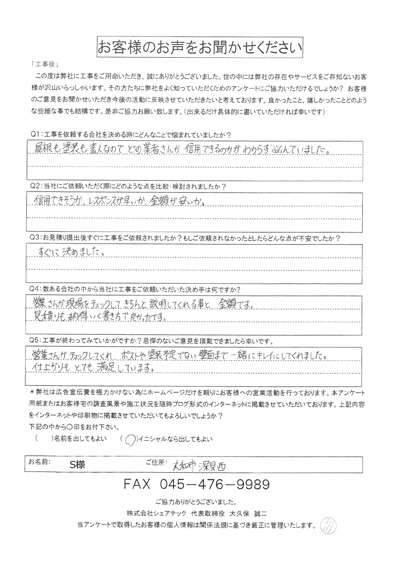 お客様のお声をお聞かせください
「工事後」
この度は弊社に工事をご用命いただき、誠にありがとうございました。世の中には弊社の存在やサービスをご存知ないお客
様が沢山いらっしゃいます。その方たちに弊社をよく知っていただくためのアンケートにご協力いただけるでしょうか？ お客様
のご意見をお聞かせいただき今後の活動に反映させていただきたいと考えております。良かったこと、嬉しかったことどのよう
な些細な事でも結構です。是非ご協力お願い致します。（出来るだけ具体的に書いていただければ幸いです）
Q1：工事を依頼する会社を決める時にどんなことで悩まれていましたか？
屋根も塗装も素人なのでどの業者さんが信用できるのかがわからず悩んでいました。
Q2：当社にご依頼いただく際にどのような点を比較・検討されましたか？
信用できそうか、レスポンスが早いか、金額が安いか。
Q3：お見積り提出後すぐに工事をご依頼されましたか？もしご依頼されなかったとしたらどんな点が不安でしたか？
すぐに決めました。
Q4：数ある会社の中から当社に工事をご依頼いただいた決め手は何ですか？
営業さんが現場をチェックしてきちんと説明してくれる事と、金額です。
見積りも納得いく書き方でした。
Q5：工事が終わってみていかがですか？忌憚のないご意見を頂戴できましたら幸いです。
営業さんがチェックしてくれ、ポストや塗装予定でない壁面まで一緒にキレイにしてくれました。
仕上がりもとても満足しています。
＊弊社は広告宣伝費を極力かけない為にホームページだけを頼りにお客様への営業活動を行っております。本アンケート
用紙またはお客様宅の調査風景や施工状況を随時ブログ形式のインターネットに掲載させていただいております。上記内容
をインターネットや印刷物に掲載させていただいてもよろしいでしょうか？
下記の中から〇印をお付下さい。
（ ）名前を出してもよい （〇）イニシャルなら出してもよい
お名前： S様 ご住所： 大和市深見西
FAX 045-476-9989
ご協力ありがとうございました。
株式会社シェアテック 代表取締役 大久保 誠二
当アンケートで取得したお客様の個人情報は関係法規に基づき厳正に管理いたします。